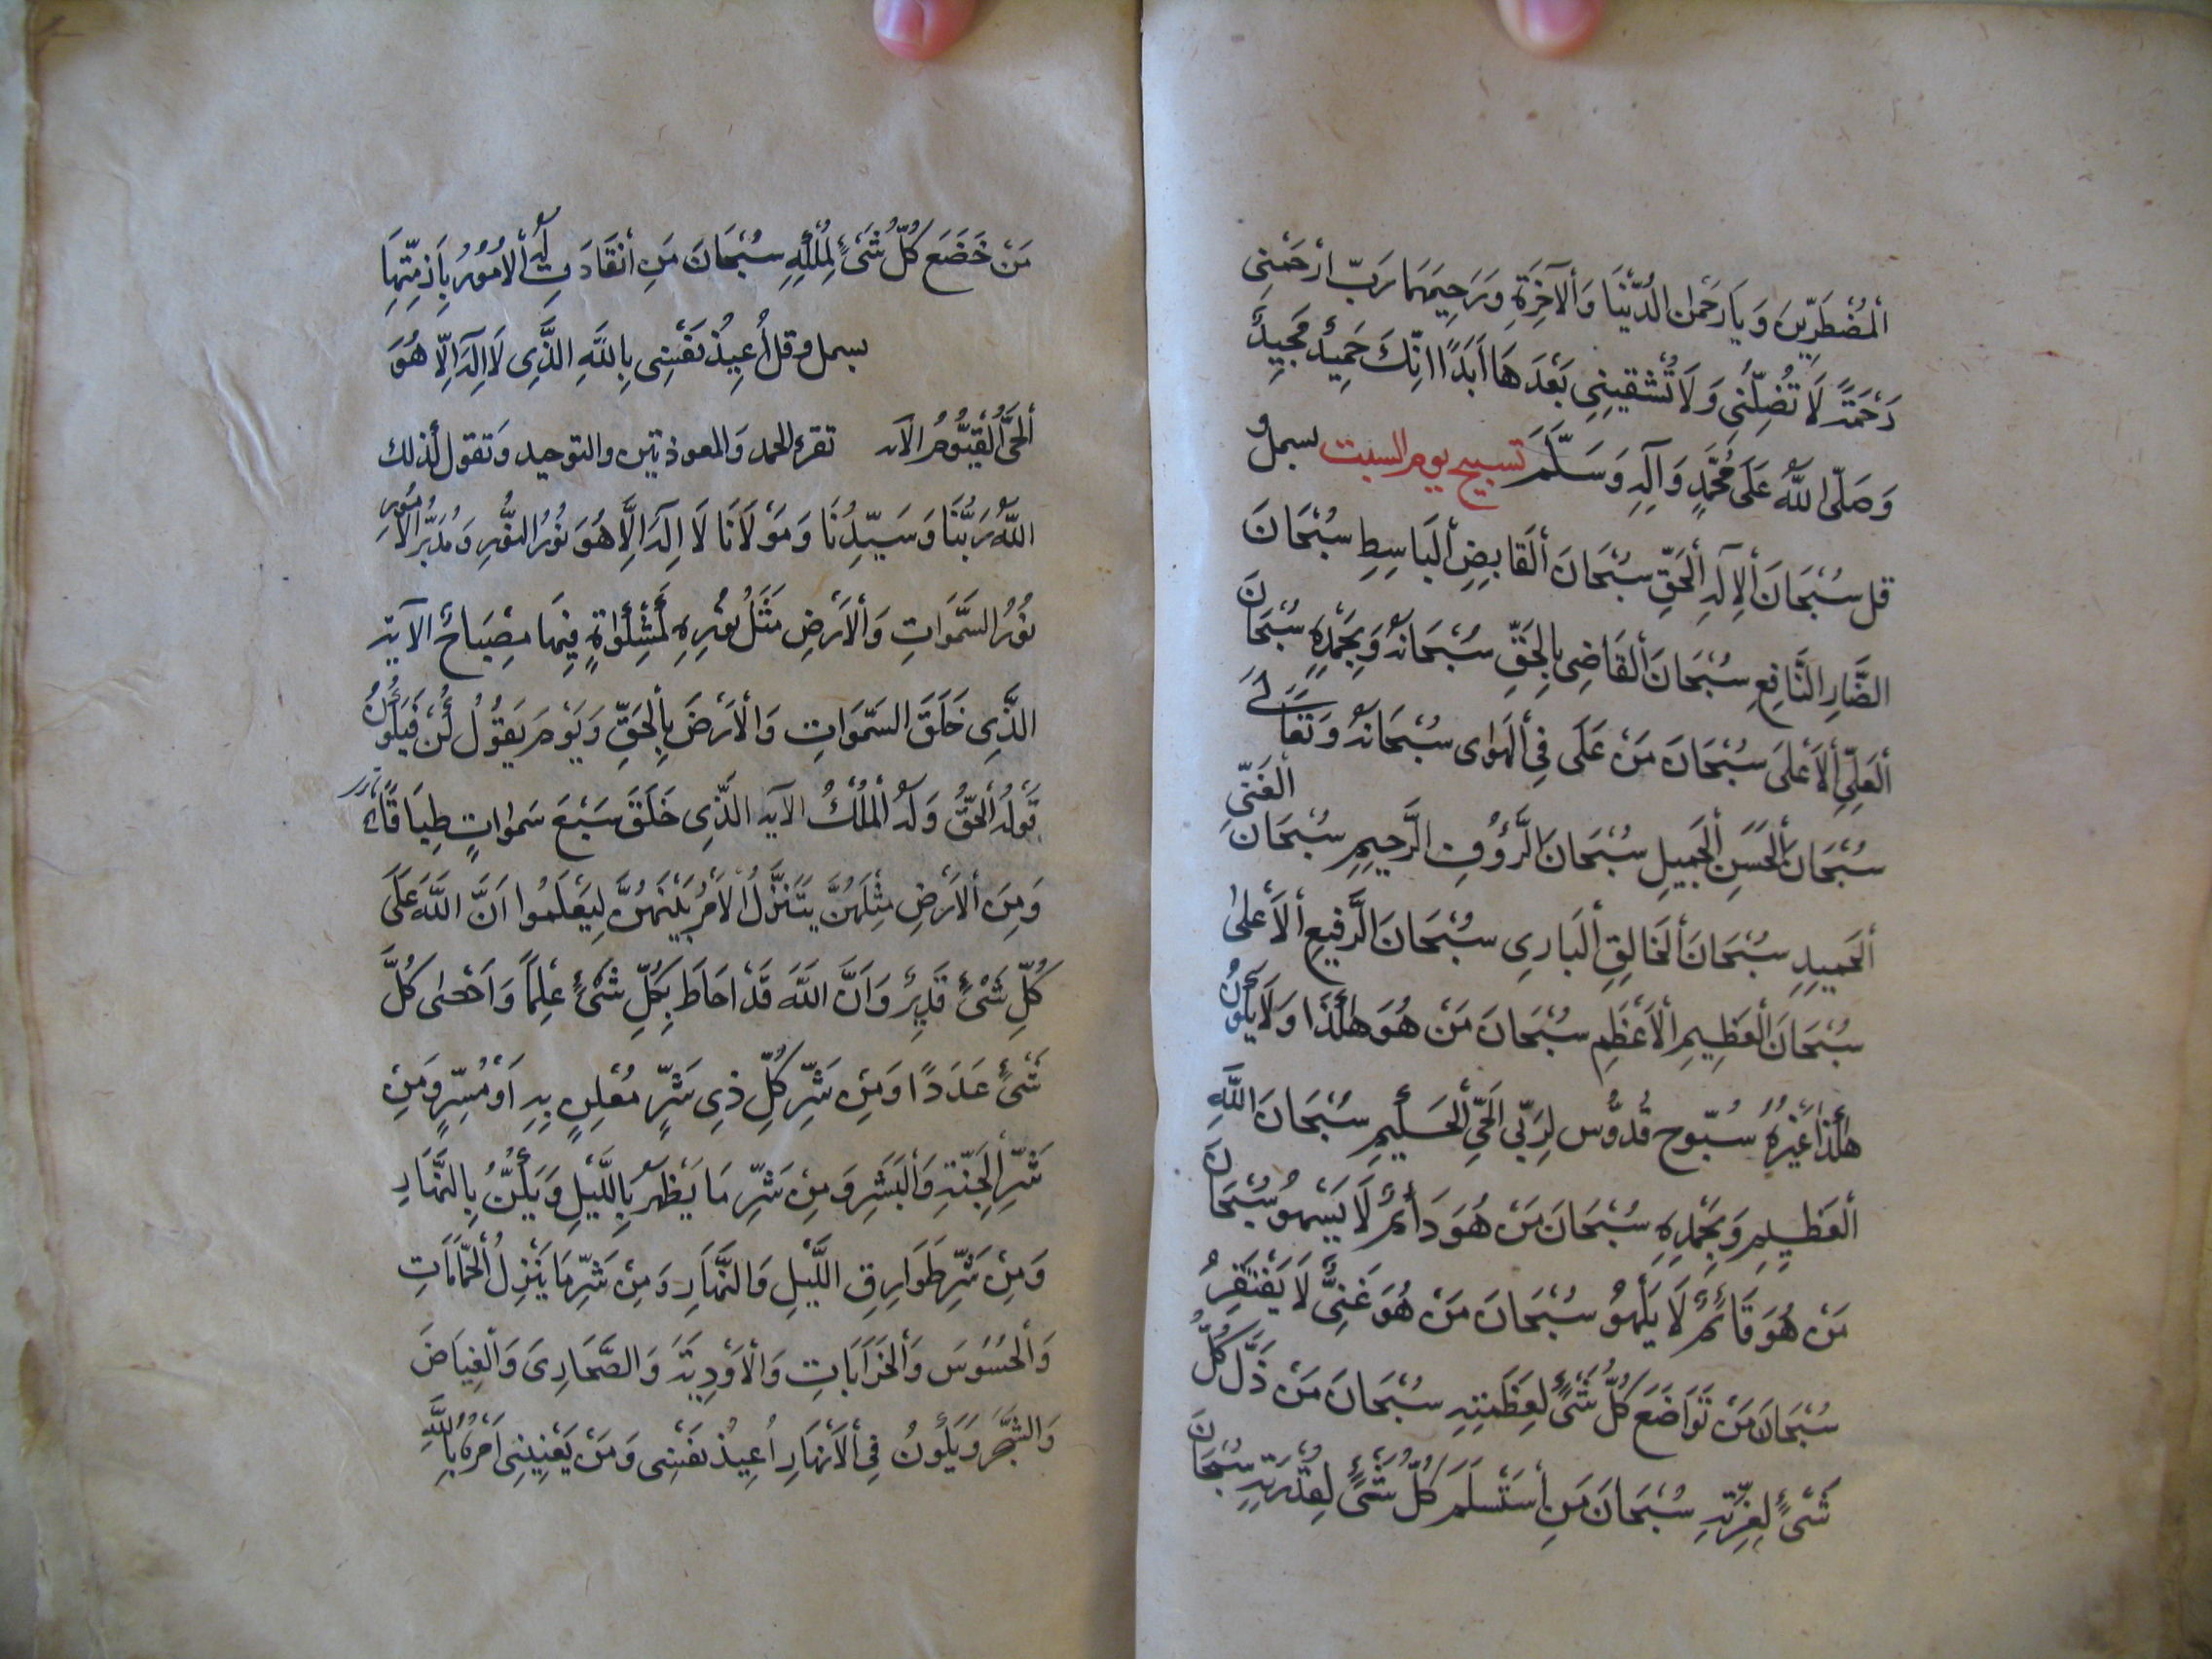 اَلْمُضْطَرِّينَ وَيَا رَحْمٰنَ الدُّنْيَا وَالْآخِرَةِ وَرَحِيمَهُمَا رَبِّ ارْحَمْنِي
رَحْمَةً لَا تُضِلَّنِي وَلَا تُشْقِينِي بَعْدَهَا أَبَدًا اِنَّكَ حَمِيدٌ مَجِيدٌ
وَصَلَّى اللَّهُ عَلَى مُحَمَّدٍ وَآلِهِ وَسَلَّمَ تسبيح يوم السبت بسمل و
قل سُبْحَانَ الْإِلَهِ الْحَقِّ سُبْحَانَ الْقَابِضِ الْبَاسِطِ سُبْحَانَ
الضَّارِ النَّافِعِ سُبْحَانَ الْقَاضِي بِالْحَقِّ سُبْحَانَهُ وَبِحَمْدِهِ سُبْحَانَ
الْعَلِيِّ الْأَعْلَى سُبْحَانَ مَنْ عَلَى فِي الْهَوَاى سُبْحَانَهُ وَتَعَالَى
سُبْحَانَ الْحَسَنِ الْجَمِيلِ سُبْحَانَ الرَّؤُفِ الرَّحِيمِ سُبْحَانَ الْغَنِيِّ
الْحَمِيدِ سُبْحَانَ الْخَالِقِ الْبَارِي سُبْحَانَ الرَّفِيعِ الْأَعْلَى
سُبْحَانَ الْعَظِيمِ الْأَعْظَمِ سُبْحَانَ مَنْ هُوَ هٰكَذَا وَلَا يَكُونُ
هٰكَذَا غَيْرُهُ سُبّوح قُدُّوس لِرَبِّي الْحَيِّ الْحَلِيمِ سُبْحَانَ اللَّهِ
الْعَظِيمِ وَبِحَمْدِهِ سُبْحَانَ مَنْ هُوَ دَائِمٌ لَا يَسْهُو سُبْحَانَ
مَنْ هُوَ قَائِمٌ لَا يَلْهُو سُبْحَانَ مَنْ هُوَ غَنِيٌّ لَا يَفْتَقِرُ
سُبْحَانَ مَنْ تَوَاضَعَ كُلُّ شَيْءٍ لِعَظَمَتِهِ سُبْحَانَ مَنْ ذَلَّ كُلُّ
شَيْءٍ لِعِزَّتِهِ سُبْحَانَ مَنِ اسْتَسْلَمَ كُلُّ شَيْءٍ لِقُدْرَتِهِ سُبْحَانَ
مَنْ خَضَعَ كُلُّ شَيْءٍ لِمُلْكِهِ سُبْحَانَ مَنِ انْقَادَتْ لَهُ الْأُمُورُ بِأَزِمَّتِهَا
بسمل و قل أُعِيذُ نَفْسِي بِاللَّهِ الَّذِي لَا اِلَهَ اِلَّا هُوَ
الْحَيُّ الْقَيُّومُ الآيه تقرء الحمد وَالمعوذتين والتوحيد وَتقول كذلك
اللَّهُ رَبُّنَا وَسَيِّدُنَا وَمَوْلَانَا لَا اِلَهَ اِلَّا هُوَ نُورُ النُّورِ وَمُدَبِّرُ الْأُمُورِ
نُورُ السَّمَوَاتِ وَالْأَرْضِ مَثَلُ نُورِهِ كَمِشْكَوٰاةٍ فِيهَا مِصْبَاحٌ الآية
الَّذِي خَلَقَ السَّمَوَاتِ وَالْأَرْضَ بِالْحَقِّ وَيَوْمَ يَقُولُ كُنْ فَيَكُونُ
قَوْلُهُ الْحَقُّ وَلَهُ الْمُلْكُ الآيه الَّذِي خَلَقَ سَبْعَ سَمواتٍ طِبَاقًا
وَمِنَ الْأَرْضِ مِثْلَهُنَّ يَتَنَزَّلُ الْأَمْرُ بَيْنَهُنَّ لِيَعْلَمُوا اَنَّ اللَّهَ عَلَى
كُلِّ شَيْءٍ قَدِيرٌ وَاَنَّ اللَّهَ قَدْ اَحَاطَ بِكُلِّ شَيْءٍ عِلْمًا وَاَحْصٰى كُلَّ
شَيْءٍ عَدَدًا وَمِنْ شَرِّ كُلِّ ذِي شَرٍّ مُعْلِنٍ بِهِ اَوْ مُسِرٍّ وَمِنْ
شَرِّ الْجِنَّةِ وَالْبَشَرِ وَمِنْ شَرِّ مَا يَظْهَرُ بِاللَّيْلِ وَيَكُنُّ بِالنَّهَارِ
وَمِنْ شَرِّ طَوَارِقِ اللَّيْلِ وَالنَّهَارِ وَمِنْ شَرِّ مَا يَنْزِلُ الْحَمَّامَاتِ
وَالْحُسُوسَ وَالْخَرَابَاتِ وَالْأَوْدِيَةَ وَالصَّحَارِىَ وَالْغِيَاضَ
وَالشَّجَرَ وَيَكُونُ فِي الْأَنْهَارِ اُعِيذُ نَفْسِي وَمَنْ يَعْنِينِي اَمْرُهُ بِاللَّهِ